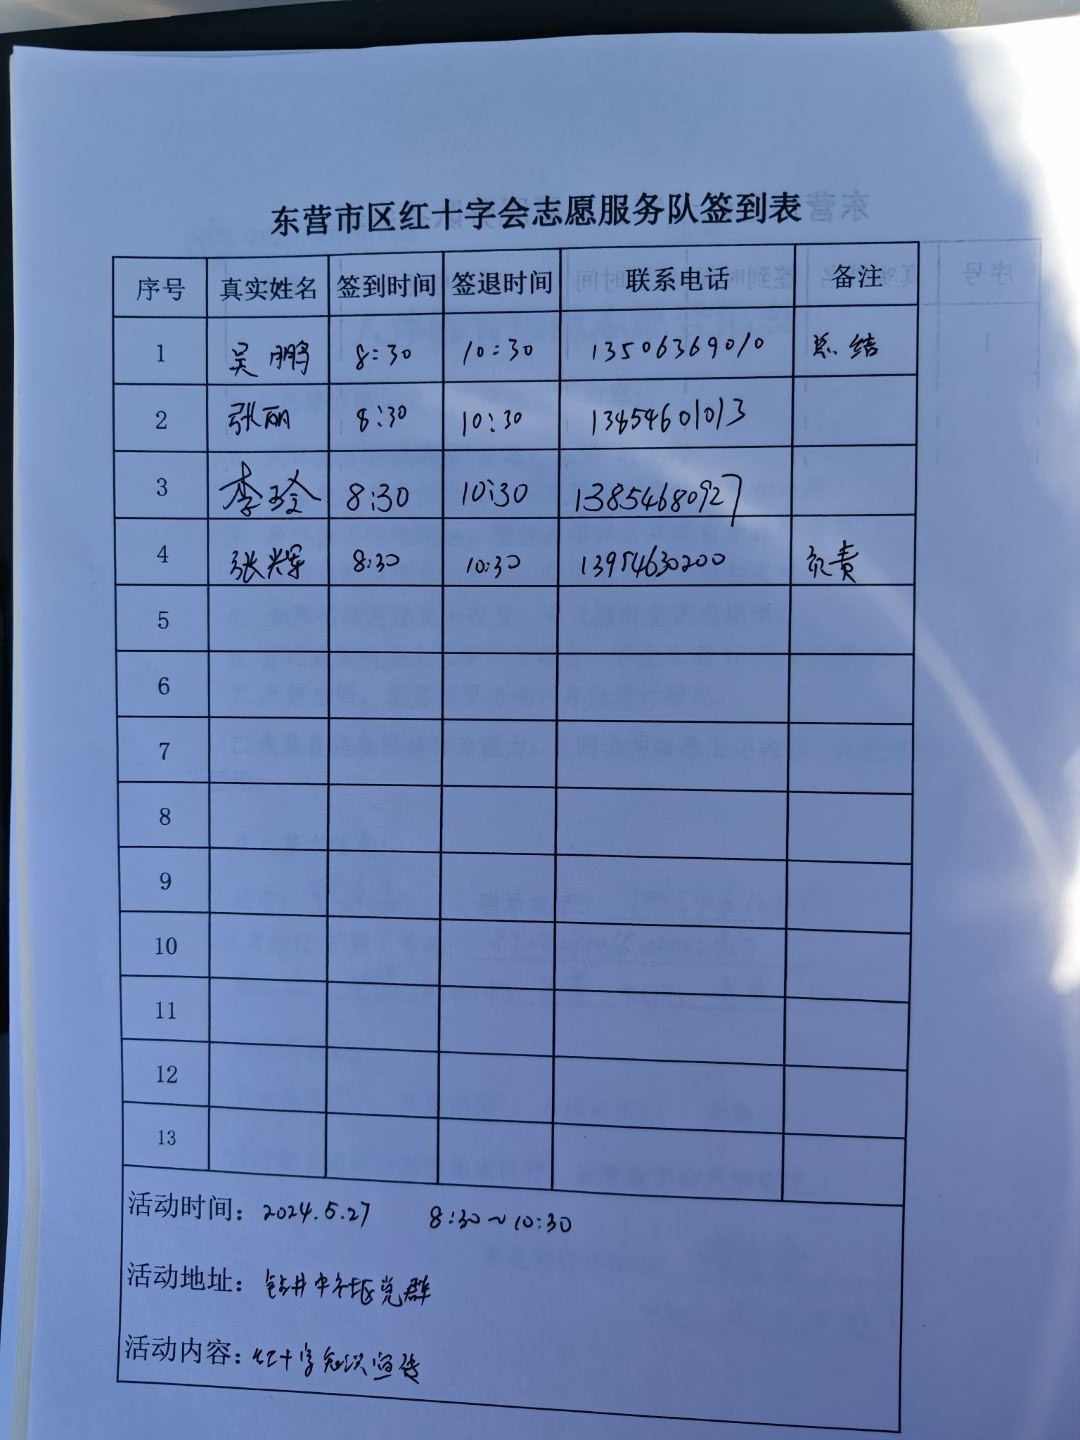 东营市区红十字会志愿服务队签到表
序号 真实姓名 签到时间 签退时间 联系电话 备注
1 吴鹏 8:30 10:30 13506369010 总结
2 张丽 8:30 10:30 13854601013
3 李玲 8:30 10:30 13854680927
4 张辉 8:30 10:30 13954630200 负责
5
6
7
8
9
10
11
12
13
活动时间: 2024.5.27 8:30~10:30
活动地址: 钻井中社区党群
活动内容: 红十字知识宣传